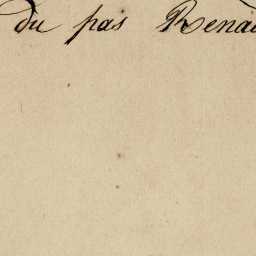 du pas Renau